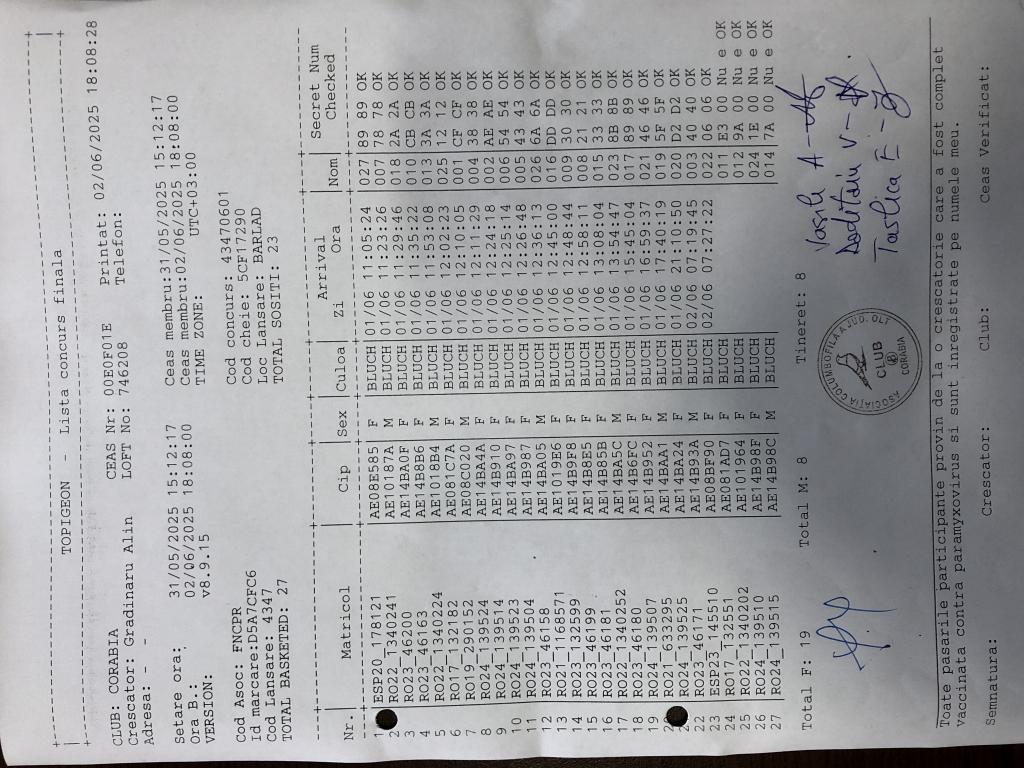 TOPIGEON - Lista concurs finala
CLUB: CORABIA CEAS Nr: 00E0F01E Printat: 02/06/2025 18:08:28
Crescator: Gradinaru Alin LOFT No: 746208 Telefon:
Adresa: - -
Setare ora: 31/05/2025 15:12:17 Ceas membru:31/05/2025 15:12:17
Ora B.: 02/06/2025 18:08:00 Ceas membru:02/06/2025 18:08:00
VERSION: v8.9.15 TIME ZONE: UTC+03:00
Cod Asoc: FNCPR Cod concurs: 43470601
Id marcare:D5A7CFC6 Cod cheie: 5CF17290
Cod Lansare: 4347 Loc Lansare: BARLAD
TOTAL BASKETED: 27 TOTAL SOSITI: 23
Nr. Matricol Cip Sex Culoa Arrival Zi Ora Nom Secret Num Checked
1 ESP20_178121 AE08E585 F BLUCH 01/06 11:05:24 027 89 89 OK
2 RO22_1340241 AE10187A M BLUCH 01/06 11:23:26 007 78 78 OK
3 RO23_46200 AE14BA0F F BLUCH 01/06 11:29:46 018 2A 2A OK
4 RO23_46163 AE14B8B6 F BLUCH 01/06 11:35:22 010 CB CB OK
5 RO22_1340224 AE1018B4 M BLUCH 01/06 11:53:08 013 3A 3A OK
6 RO17_132182 AE081C7A F BLUCH 01/06 12:02:23 025 12 12 OK
7 RO19_290152 AE08C020 M BLUCH 01/06 12:10:05 001 CF CF OK
8 RO24_139524 AE14BA4A F BLUCH 01/06 12:11:29 004 38 38 OK
9 RO24_139514 AE14B910 F BLUCH 01/06 12:24:18 002 AE AE OK
10 RO24_139523 AE14BA97 F BLUCH 01/06 12:25:14 006 54 54 OK
11 RO24_139504 AE14B987 F BLUCH 01/06 12:26:48 005 43 43 OK
12 RO23_46158 AE14BA05 M BLUCH 01/06 12:36:13 026 6A 6A OK
13 RO22_1168571 AE1019E6 F BLUCH 01/06 12:45:00 016 DD DD OK
14 RO23_132599 AE14B9F8 F BLUCH 01/06 12:48:44 009 30 30 OK
15 RO23_46199 AE14B8E5 F BLUCH 01/06 12:58:11 008 21 21 OK
16 RO23_46181 AE14B85B F BLUCH 01/06 13:08:04 015 33 33 OK
17 RO22_1340252 AE14BA5C M BLUCH 01/06 13:54:47 023 8B 8B OK
18 RO23_46180 AE14B6FC F BLUCH 01/06 15:45:04 017 89 89 OK
19 RO24_139507 AE14B952 F BLUCH 01/06 16:59:37 021 46 46 OK
20 RO21_633295 AE14BAA1 M BLUCH 01/06 17:40:19 019 5F 5F OK
21 RO24_139525 AE14BA24 F BLUCH 01/06 21:10:50 020 D2 D2 OK
22 RO23_46171 AE14B93A M BLUCH 02/06 07:19:45 003 40 40 OK
23 ESP23_145510 AE08BF90 F BLUCH 02/06 07:27:22 022 06 06 OK
24 RO17_132551 AE081AD7 F BLUCH 011 E3 00 Nu e OK
25 RO22_1340202 AE101964 F BLUCH 012 9A 00 Nu e OK
26 RO24_139510 AE14B98F F BLUCH 024 1E 00 Nu e OK
27 RO24_139515 AE14B98C M BLUCH 014 7A 00 Nu e OK
Total F: 19 Total M: 8 Tineret: 8
ASOCIATIA COLUMBOFILA A JUD. OLT
CLUB
CORABIA
Toate pasarile participante provin de la o crescatorie care a fost complet
vaccinata contra paramyxovirus si sunt inregistrate pe numele meu.
Semnatura: Crescator: Club: Ceas Verificat: